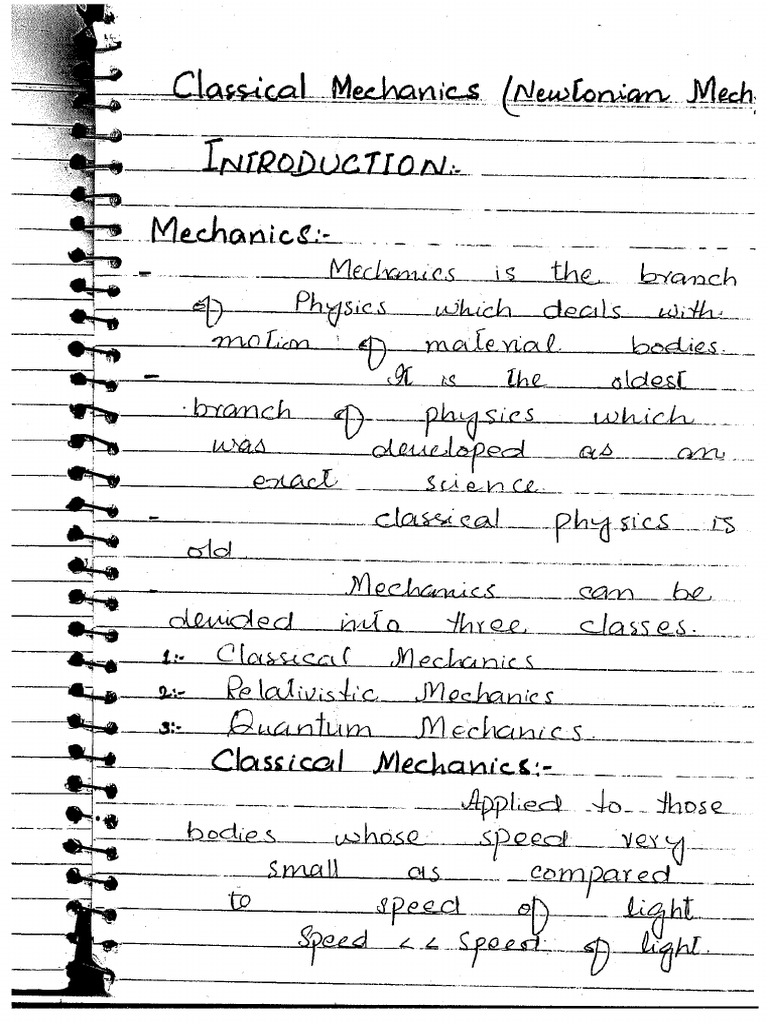 Classical Mechanics (Newtonian Mech
INTRODUCTION:-
Mechanics:-
- Mechanics is the branch
of Physics which deals with
motion of material bodies.
- It is the oldest
branch of physics which
was developed as an
exact science
- classical physics is
old
- Mechanics can be
devided into three classes.
1:- Classical Mechanics
2:- Relativistic Mechanics
3:- Quantum Mechanics.
Classical Mechanics:-
Applied to those
bodies whose speed very
small as compared
to speed of light
Speed << Speed of light.